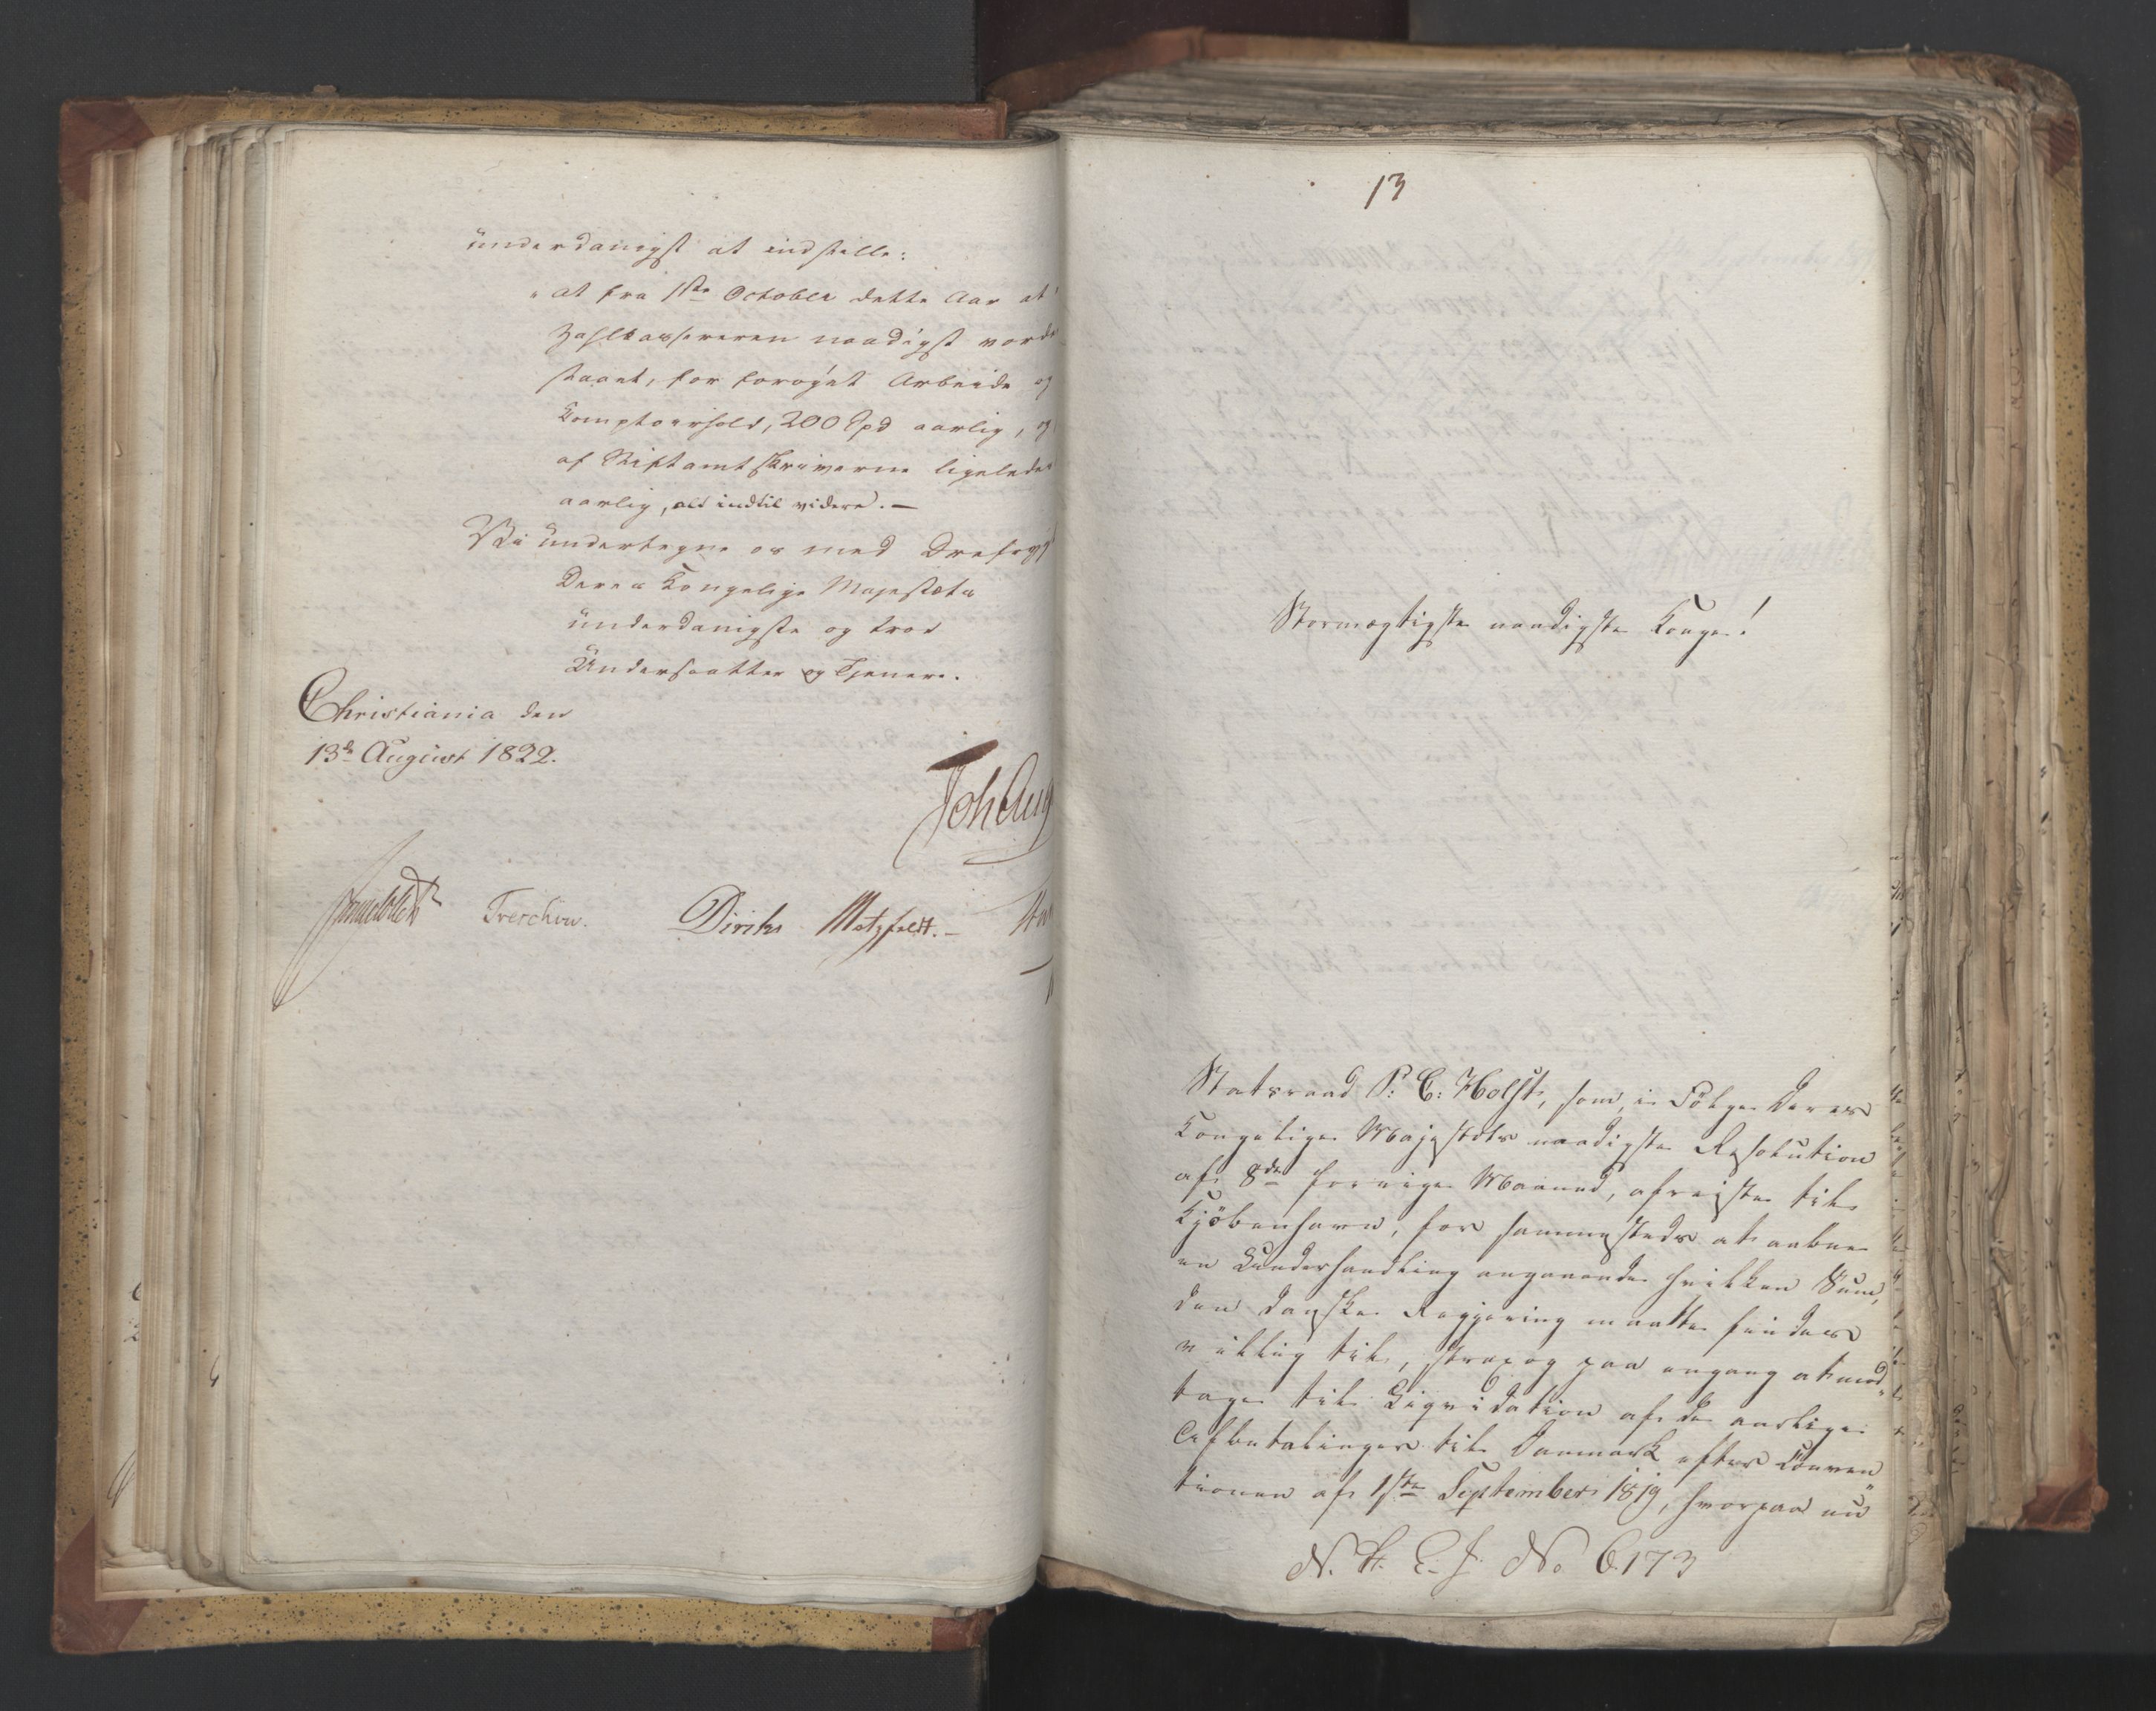 underdanigst at indstille:
"at fra 1ste October dette Aar at
Zahlkassereren naadigst vorde
staaet, for forøget Arbeide og
Comptoirhold, 200 Spd aarlig, og
af Stiftamtskriverne ligeledes
aarlig, alt indtil videre. —
Vi undertegne os med Dybeste
Deres Kongelige Majestæts
underdanigste og troe
Undersaatter og Tjenere.
Christiania den
13de August 1822.
Joh Aug
Sommelhielm Treschow. Diriks Motzfeldt. —
13
Stormægtigste naadigste Konge!
Statsraad P: C: Holst, som, i Følge Deres
Kongelige Majestæts naadigste Resolution
af 8de forrige Maaned, afreiste til
Kjøbenhavn, for sammesteds at aabne
en Underhandling angaaende hvilken Sum,
den danske Regjering maatte findes
villig til, strax og paa engang at mod„
tage til Liqvidation af de aarlige
Afbetalinger til Danmark efter Conven„
tionen af 1ste September 1819, hvorpaa nu
N. H. E. J. No 6173